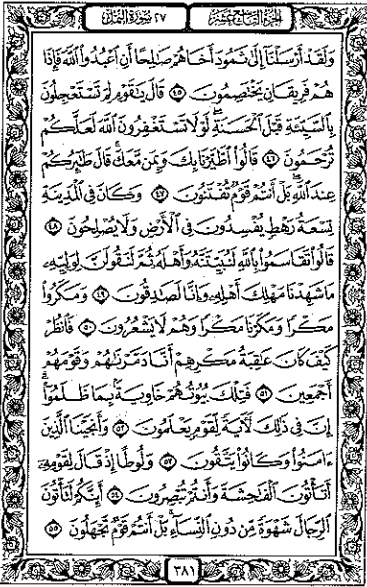 الجزء التاسع عشر ٢٧ سورة النمل
وَلَقَدْ أَرْسَلْنَآ إِلَىٰ ثَمُودَ أَخَاهُمْ صَٰلِحًا أَنِ ٱعْبُدُوا۟ ٱللَّهَ فَإِذَا
هُمْ فَرِيقَانِ يَخْتَصِمُونَ ٤٥ قَالَ يَٰقَوْمِ لِمَ تَسْتَعْجِلُونَ
بِٱلسَّيِّئَةِ قَبْلَ ٱلْحَسَنَةِ لَوْلَا تَسْتَغْفِرُونَ ٱللَّهَ لَعَلَّكُمْ
تُرْحَمُونَ ٤٦ قَالُوا۟ ٱطَّيَّرْنَا بِكَ وَبِمَن مَّعَكَ قَالَ طَٰٓئِرُكُمْ
عِندَ ٱللَّهِ بَلْ أَنتُمْ قَوْمٌ تُفْتَنُونَ ٤٧ وَكَانَ فِى ٱلْمَدِينَةِ
تِسْعَةُ رَهْطٍ يُفْسِدُونَ فِى ٱلْأَرْضِ وَلَا يُصْلِحُونَ ٤٨
قَالُوا۟ تَقَاسَمُوا۟ بِٱللَّهِ لَنُبَيِّتَنَّهُۥ وَأَهْلَهُۥ ثُمَّ لَنَقُولَنَّ لِوَلِيِّهِۦ
مَا شَهِدْنَا مَهْلِكَ أَهْلِهِۦ وَإِنَّا لَصَٰدِقُونَ ٤٩ وَمَكَرُوا۟
مَكْرًا وَمَكَرْنَا مَكْرًا وَهُمْ لَا يَشْعُرُونَ ٥٠ فَٱنظُرْ
كَيْفَ كَانَ عَٰقِبَةُ مَكْرِهِمْ أَنَّا دَمَّرْنَٰهُمْ وَقَوْمَهُمْ
أَجْمَعِينَ ٥١ فَتِلْكَ بُيُوتُهُمْ خَاوِيَةًۢ بِمَا ظَلَمُوٓا۟
إِنَّ فِى ذَٰلِكَ لَءَايَةً لِّقَوْمٍ يَعْلَمُونَ ٥٢ وَأَنجَيْنَا ٱلَّذِينَ
ءَامَنُوا۟ وَكَانُوا۟ يَتَّقُونَ ٥٣ وَلُوطًا إِذْ قَالَ لِقَوْمِهِۦٓ
أَتَأْتُونَ ٱلْفَٰحِشَةَ وَأَنتُمْ تُبْصِرُونَ ٥٤ أَئِنَّكُمْ لَتَأْتُونَ
ٱلرِّجَالَ شَهْوَةً مِّن دُونِ ٱلنِّسَآءِ بَلْ أَنتُمْ قَوْمٌ تَجْهَلُونَ ٥٥
٣٨١